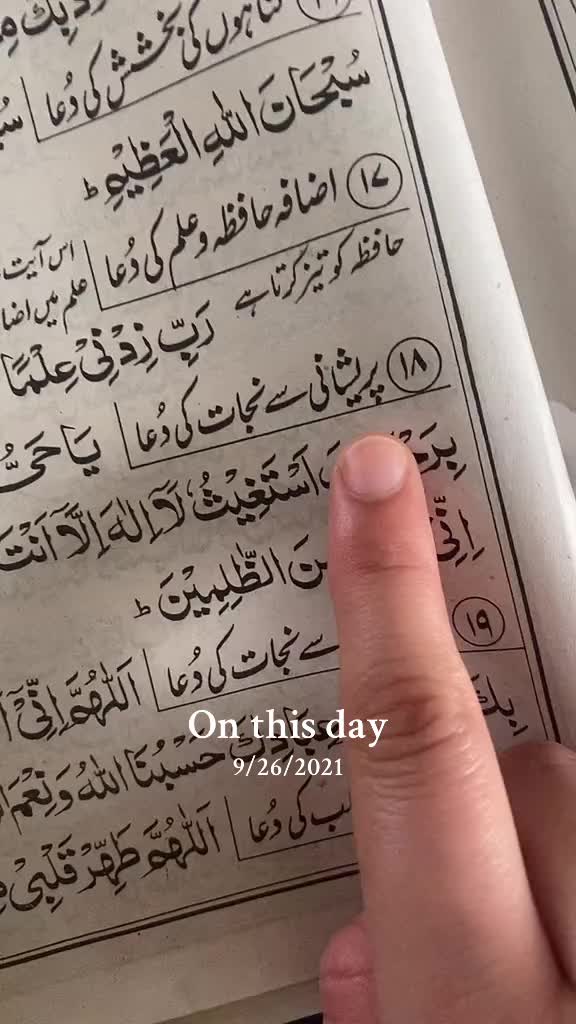 گناہوں کی بخشش کی دُعا
سُبْحَانَ اللّٰهِ الْعَظِيْمِ ط
١٧ اضافہ حافظہ و علم کی دُعا
اس آیت
حافظہ کو تیز کرتا ہے
علم میں اضا
رَبِّ زِدْنِيْ عِلْمًا
١٨ پریشانی سے نجات کی دُعا يَا حَيُّ
اَسْتَغِيْثُ لَآ اِلٰهَ اِلَّآ اَنْتَ
اِنِّيْ الظّٰلِمِيْنَ ط
١٩ سے نجات کی دُعا اَللّٰهُمَّ اِنِّيْٓ
بِكَ حَسْبُنَا اللّٰهُ وَنِعْمَ
کی دُعا اَللّٰهُمَّ طَهِّرْ قَلْبِيْ
On this day
9/26/2021